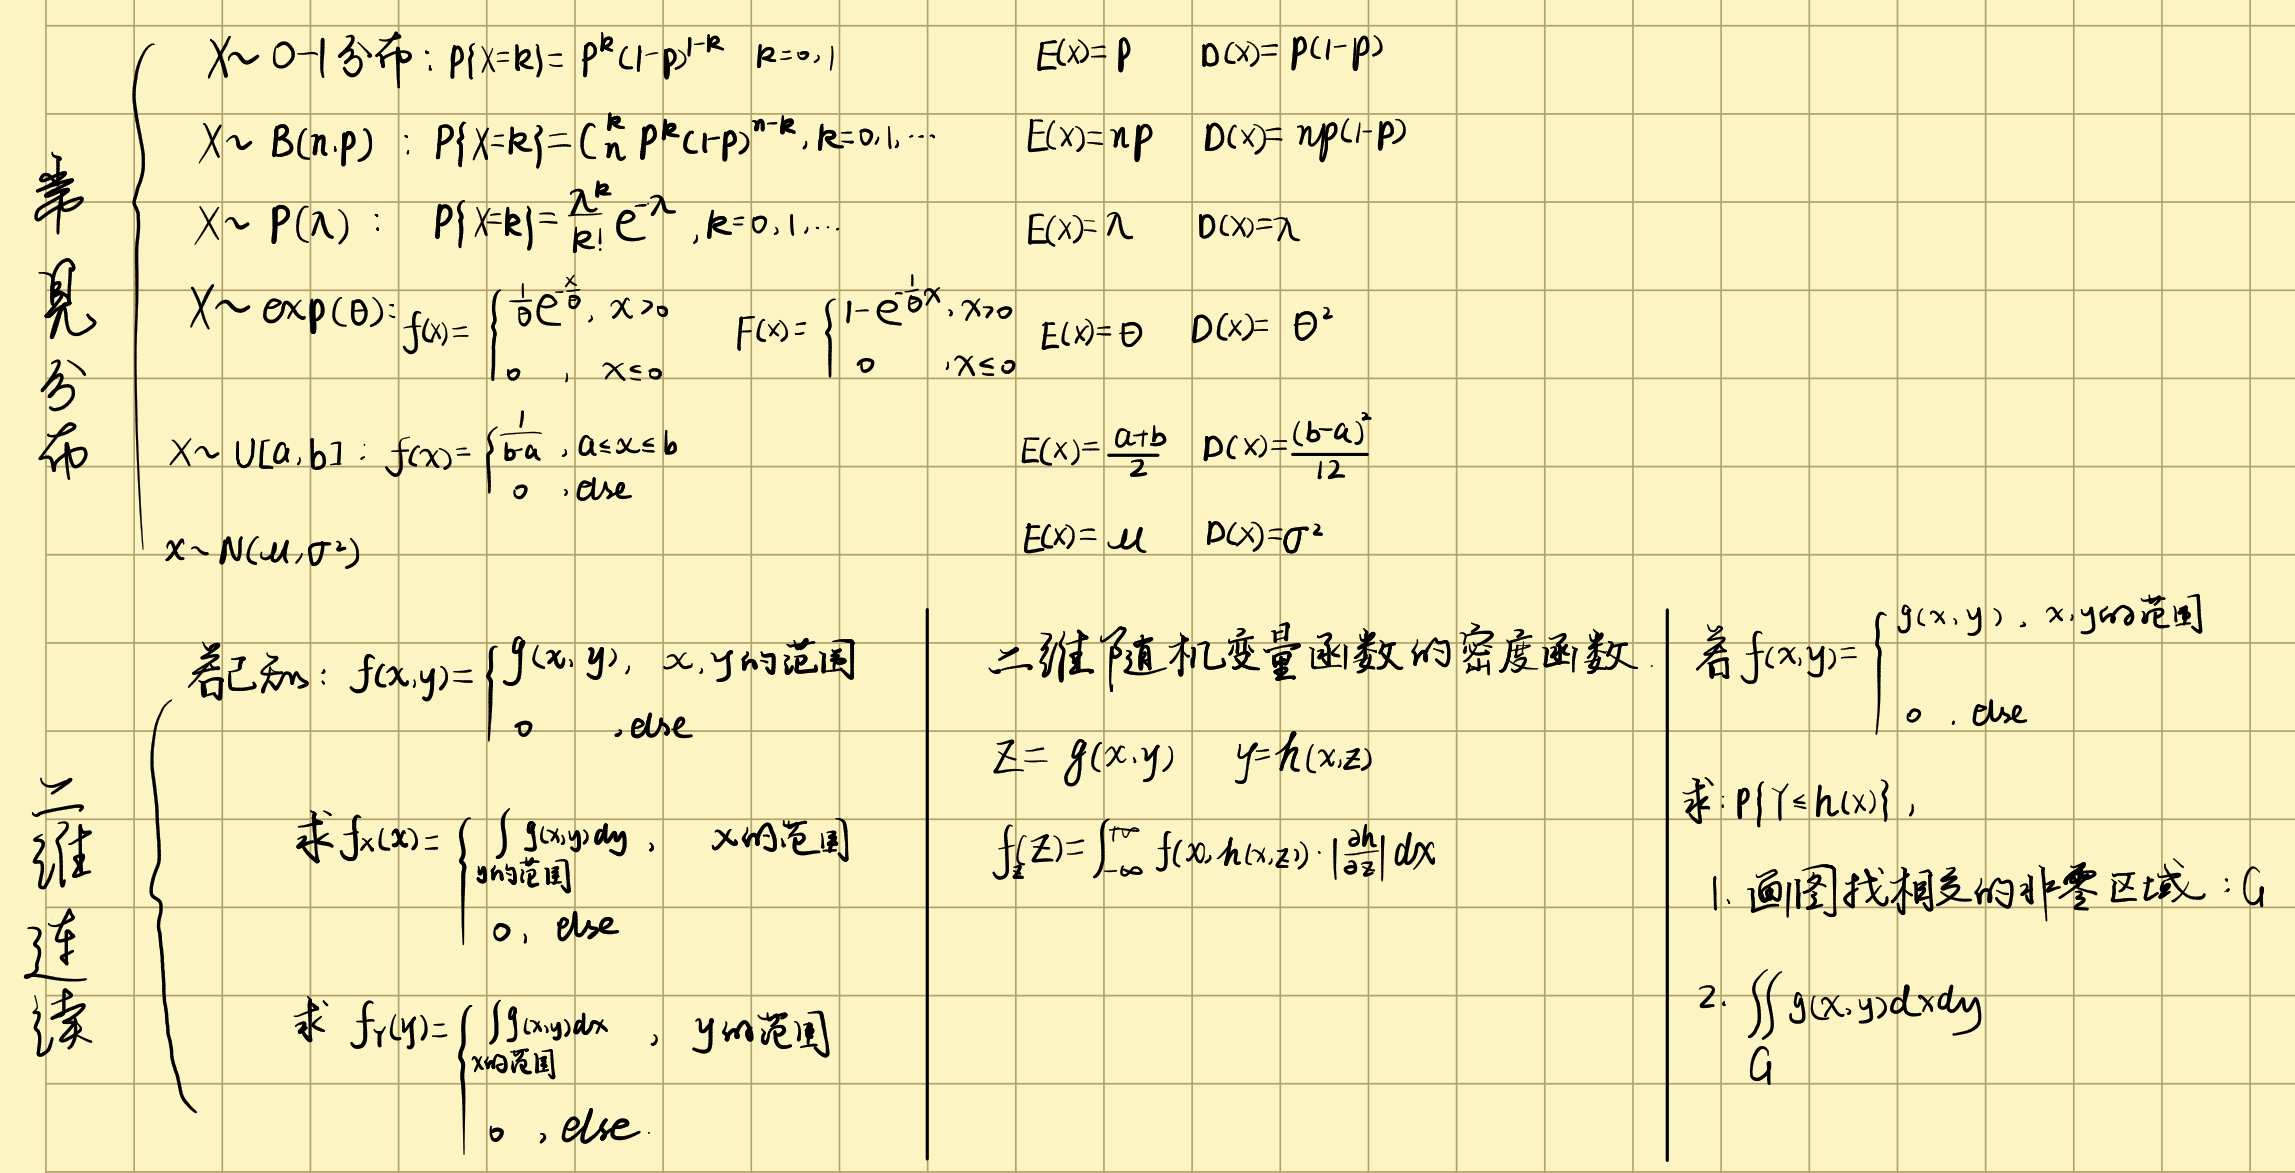 常見分布
X~ 0-1分布 : P{X=k}= p^k(1-p)^{1-k} k=0,1 E(x)=p D(x)=p(1-p)
X~ B(n.p) : P{X=k}=C_n^k p^k(1-p)^{n-k}, k=0,1,… E(x)=np D(x)=np(1-p)
X~ P(λ) : P{X=k}=\frac{λ^k}{k!}e^{-λ}, k=0,1,… E(x)=λ D(x)=λ
X~ exp(θ): f(x)= { \frac{1}{θ}e^{-\frac{x}{θ}}, x>0 F(x)= { 1-e^{-\frac{1}{θ}x}, x>0 E(x)=θ D(x)= θ²
0 , x≤0 0 , x≤0
X~ U[a,b] : f(x)= { \frac{1}{b-a} , a≤x≤b E(x)=\frac{a+b}{2} D(x)=\frac{(b-a)²}{12}
0 , else
x~ N(μ,σ²) E(x)= μ D(x)=σ²
二维连续
若已知: f(x,y)= { g(x,y), x,y的范围
0 , else
求 f_X(x)= { ∫ g(x,y)dy , x的范围
y的范围
0, else
求 f_Y(y)= { ∫g(x,y)dx , y的范围
x的范围
0 , else.
二维随机变量函数的密度函数.
Z= g(x,y) y=h(x,z)
f_Z(Z)=∫_{-∞}^{+∞} f(x,h(x,z))·|\frac{∂h}{∂z}| dx
若 f(x,y)= { g(x,y) , x,y的范围
0 . else
求: P{Y≤h(x)},
1. 画图找相交的非零区域 : G
2. ∬ g(x,y)dxdy
G